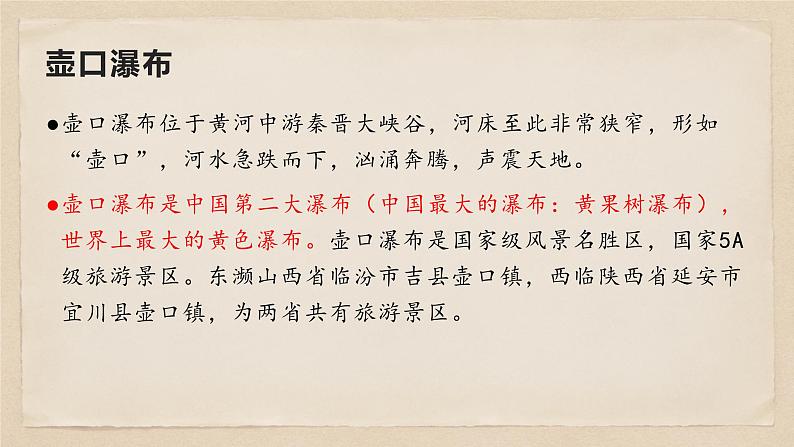 壶口瀑布
●壶口瀑布位于黄河中游秦晋大峡谷，河床至此非常狭窄，形如
“壶口”，河水急跌而下，汹涌奔腾，声震天地。
●壶口瀑布是中国第二大瀑布（中国最大的瀑布：黄果树瀑布），
世界上最大的黄色瀑布。壶口瀑布是国家级风景名胜区，国家5A
级旅游景区。东濒山西省临汾市吉县壶口镇，西临陕西省延安市
宜川县壶口镇，为两省共有旅游景区。